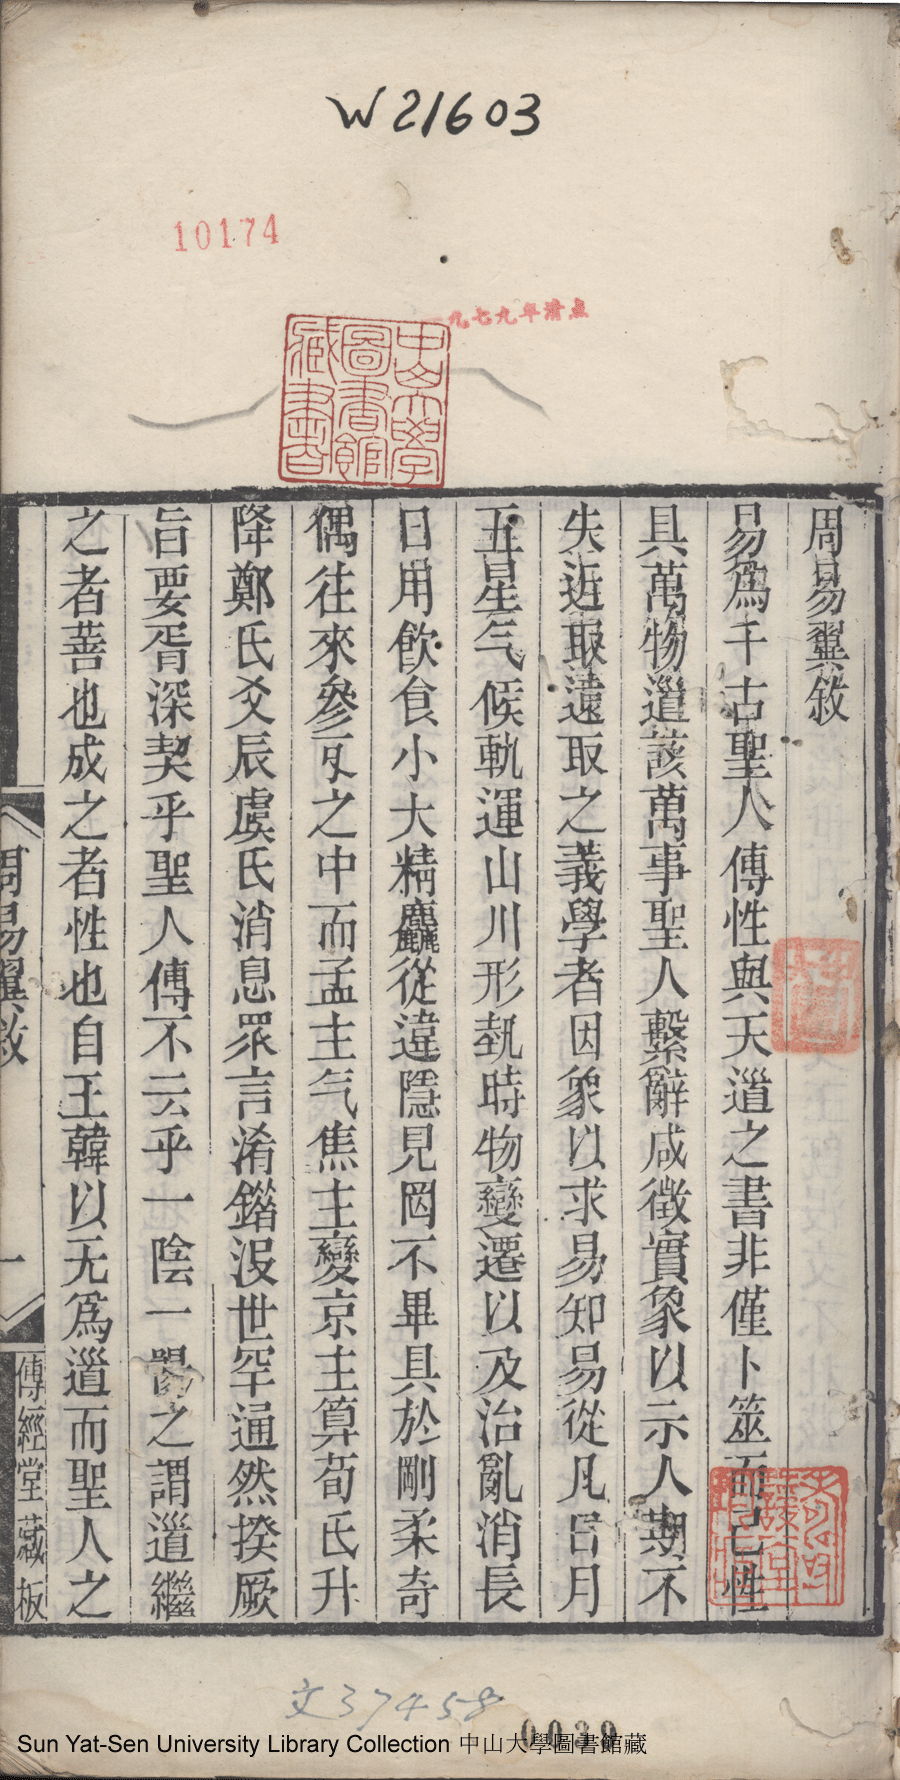 W21603
10174
一九七九年清点
中山大學
圖書館
藏書
周易翼敘
易爲千古聖人傳性與天道之書非僅卜筮而已性
具萬物道該萬事聖人繫辭咸徵實象以示人期不
失近取遠取之義學者因象以求易知易從凡日月
五星气候軌運山川形埶時物變遷以及治亂消長
日用飲食小大精麤從違隱見罔不畢具於剛柔奇
偶往來參互之中而孟主气焦主變京主算荀氏升
降鄭氏爻辰虞氏消息眾言淆錯沒世罕通然揆厥
旨要胥深契乎聖人傳不云乎一陰一陽之謂道繼
之者善也成之者性也自王韓以无爲道而聖人之
周易翼敘
一
傳經堂藏板
文37458
0039
Sun Yat-Sen University Library Collection 中山大學圖書館藏